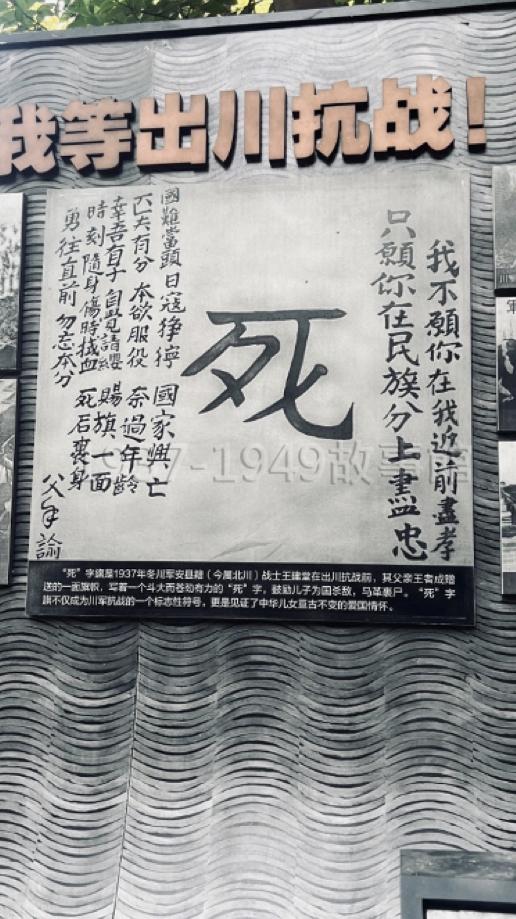 我等出川抗战！
我不願你在我近前盡孝
只願你在民族分上盡忠
死
國難當頭 日寇猙獰 國家興亡
匹夫有分 本欲服役 奈過年齡
幸吾有子 自覺請纓 賜旗一面
時刻隨身 傷時拭血 死后裹身
勇往直前 勿忘本分
父手諭
“死”字旗是1937年冬川军安县籍（今属北川）战士王建堂在出川抗战前，其父亲王者成赠
送的一面旗帜，写着一个斗大而苍劲有力的“死”字，鼓励儿子为国杀敌，马革裹尸。“死”字
旗不仅成为川军抗战的一个标志性符号，更是见证了中华儿女亘古不变的爱国情怀。
7-1949故事
軍